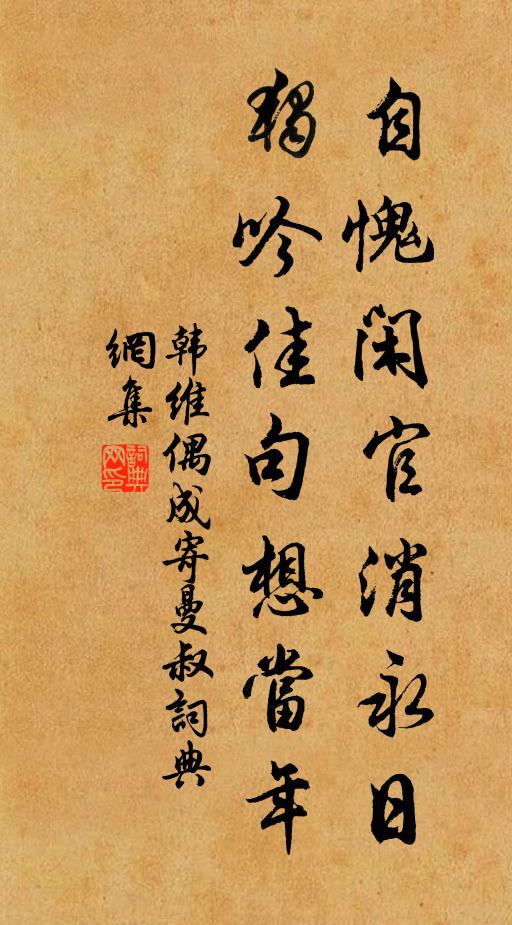 自愧閑官消永日
獨吟佳句想當年
韩维偶成寄曼叔詞典
網集
詞典網印